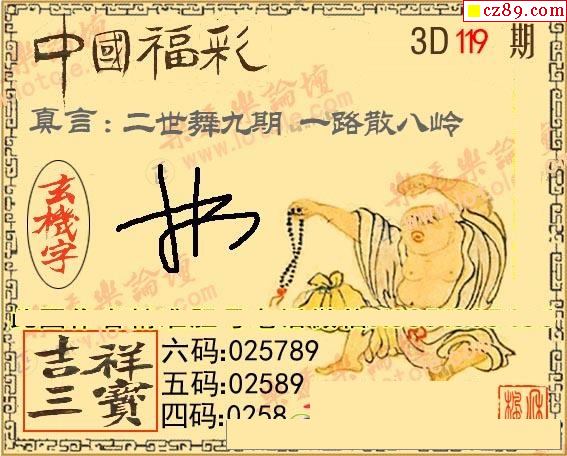 cz89.com
中國福彩
3D 119 期
真言：二世舞九期 一路散八岭
玄機字
吉祥三寶
六码:025789
五码:02589
四码:0258